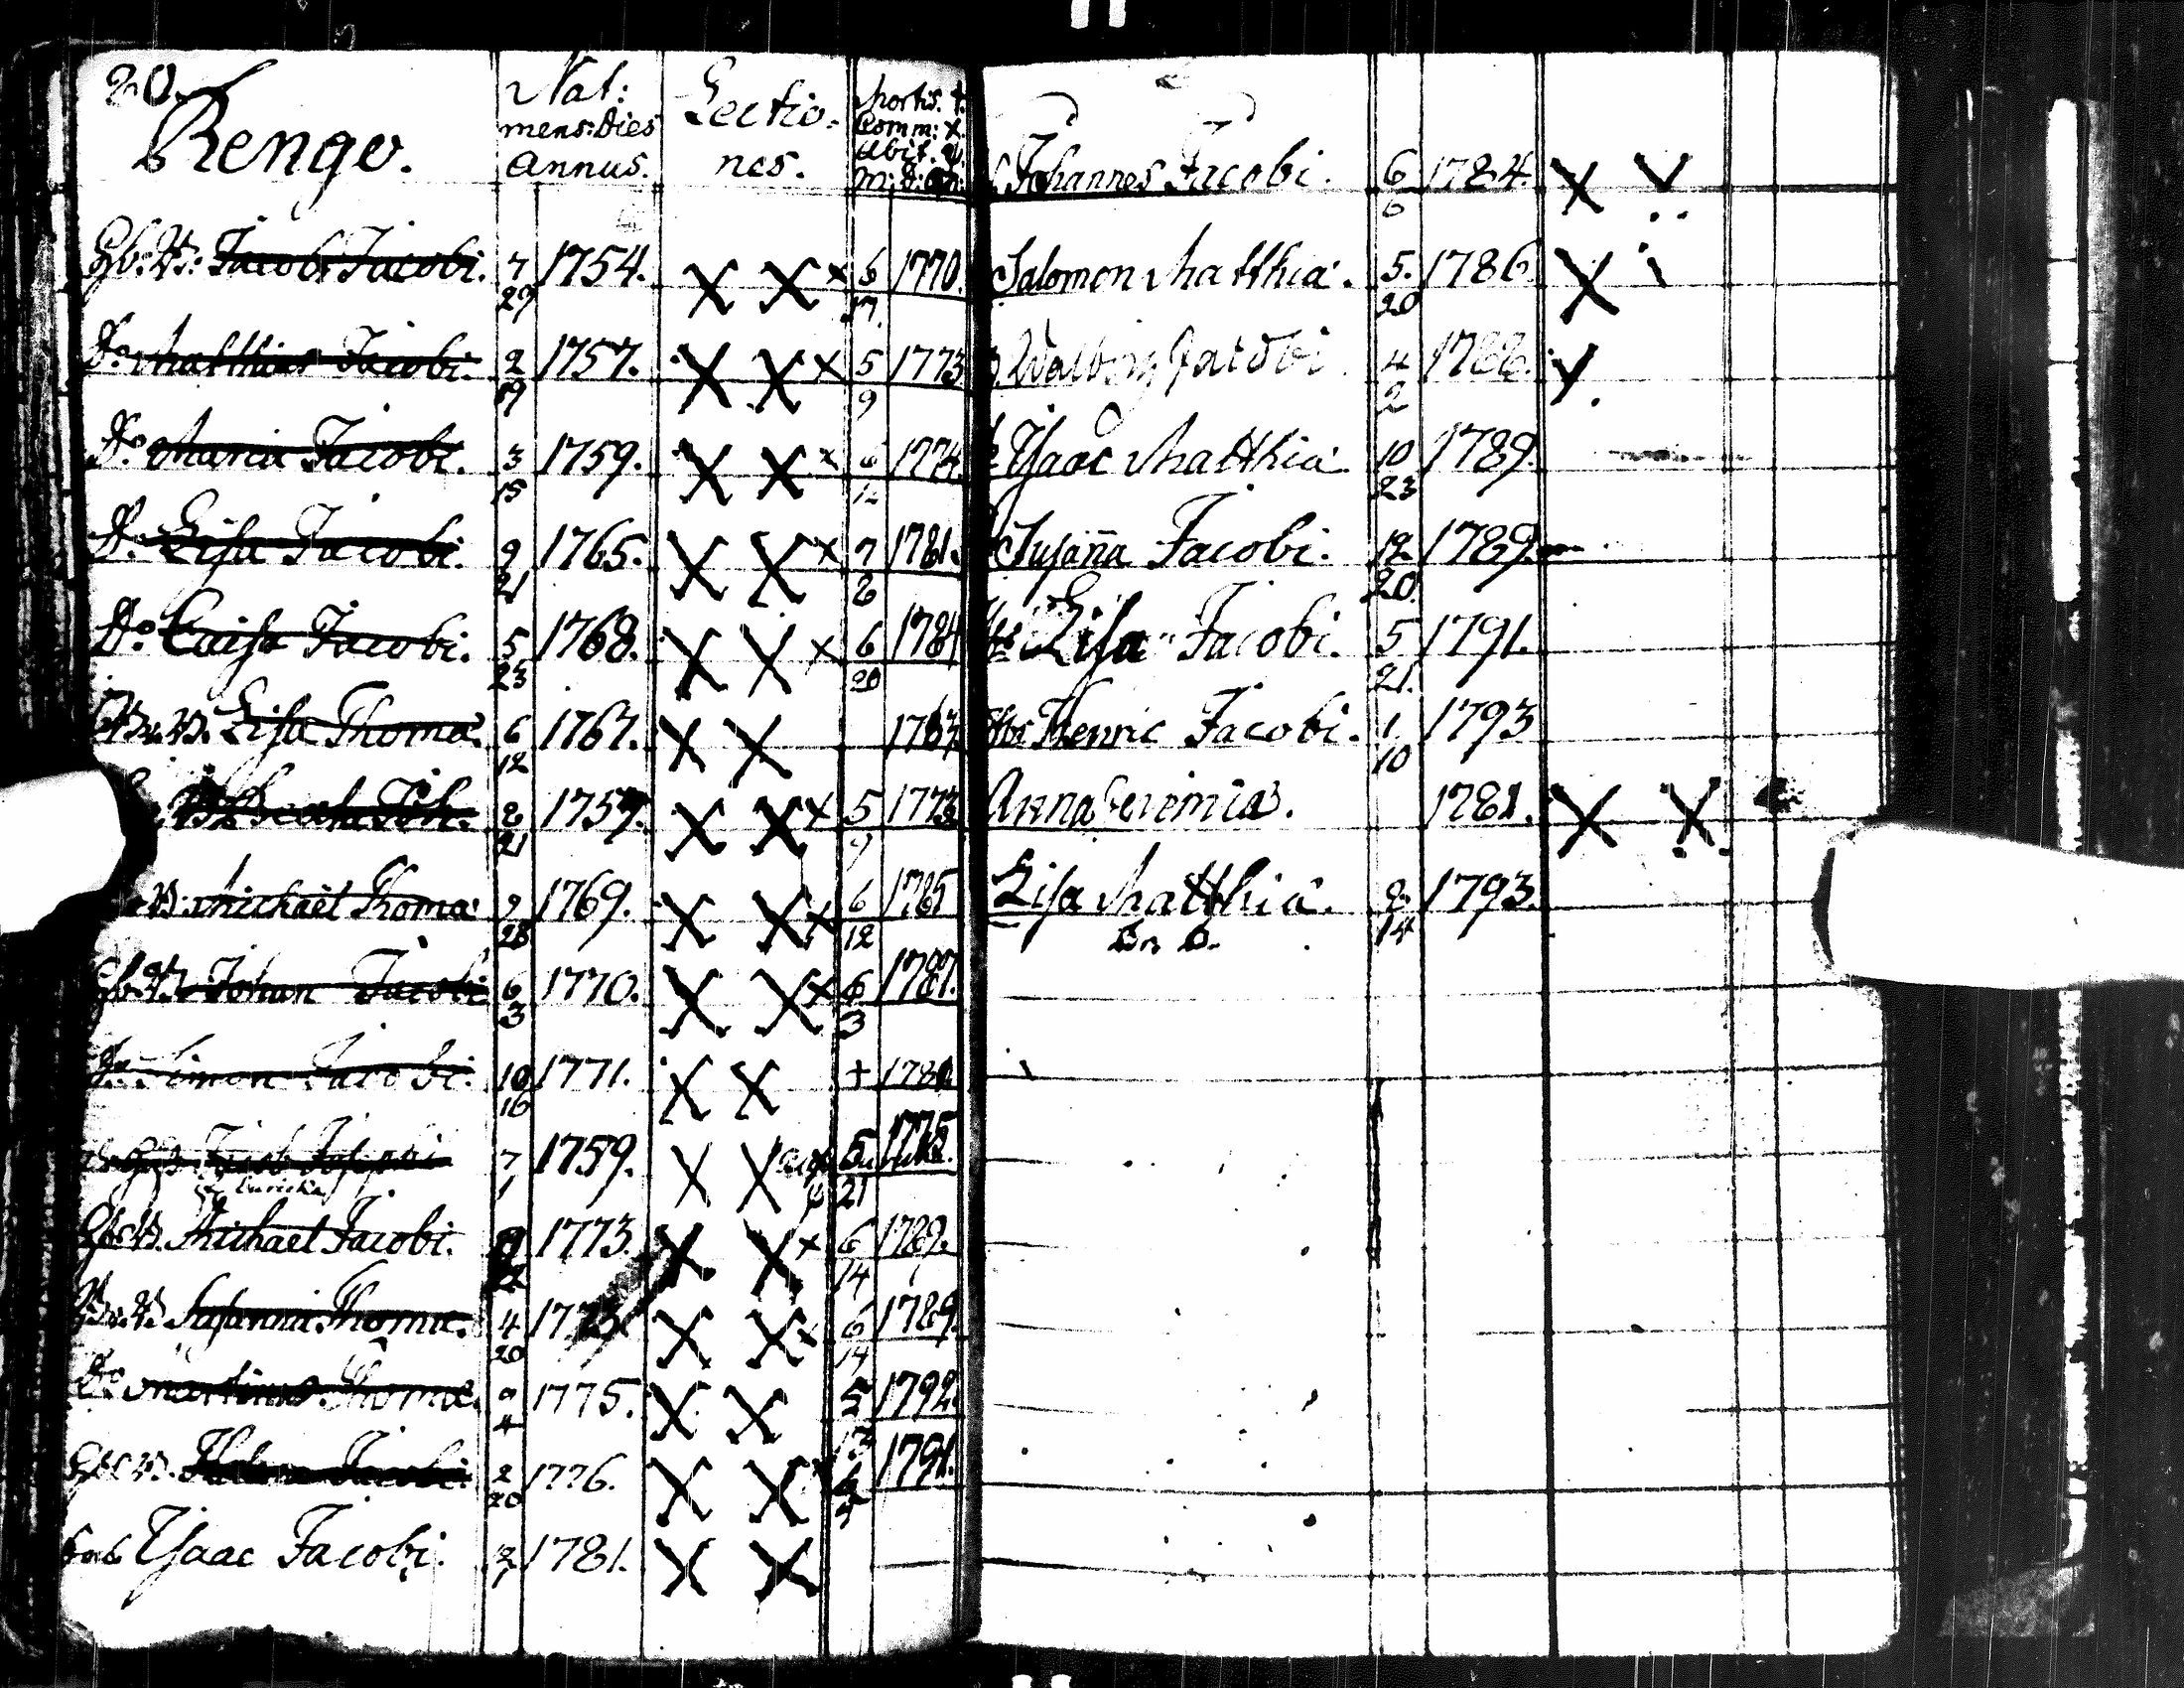 20.
Rengo.
Nat:
mens: Dies
Annus.
Lectio-
nes.
Mortis. †.
Comm: X.
Abit.
m: d: an:
Jacob Jacobi. 7 29 1754. X X x 6 17. 1770.
Do Matthias Jacobi. 2 19 1757. X X x 5 9 1773
Do Maria Jacobi. 3 15 1759. X X x 6 12 1774.
Do Lisa Jacobi. 9 21 1765. X X x 7 8 1781.
Do Caisa Jacobi. 5 23 1768. X X x 6 20 1784
Lisa Thomæ. 6 12 1767. X X
21 1757. X X x 5 9 1773
Michaël Thomæ 9 28 1769. X X x 6 12 1785
Johan Jacobi 6 3 1770. X X x 6 3 1787.
Do Simon Jacobi. 10 16 1771. X X +
Jacob Josephi 7 1 1759. X X 5 21 1775
Michael Jacobi. 1773. X X x 6 14 1789.
Susanna Thomæ. 4 20 1773 X X x 6 14 1789.
Do Martinus Thomæ. 9 4 1775. X X 5 13 1792.
Jacobi 2 20 1776. X X 1791.
Isaac Jacobi. 1781. X X
Johannes Jacobi. 6 6 1784. X
Salomon Matthiæ. 5. 20 1786. X
Walborg Jacobi 4 2 1788.
Isaac Matthiæ 10 23 1789.
Susaña Jacobi. 12 20. 1789.
Lisa Jacobi. 5 21. 1791.
Henric Jacobi. 1 10 1793
Anna Jeremiæ. 1781. X X
Lisa Matthiæ. 14 1793.